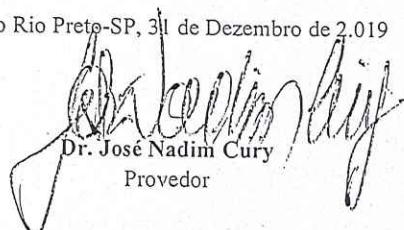 o Rio Preto-SP, 31 de Dezembro de 2.019
Dr. José Nadim Cury
Provedor